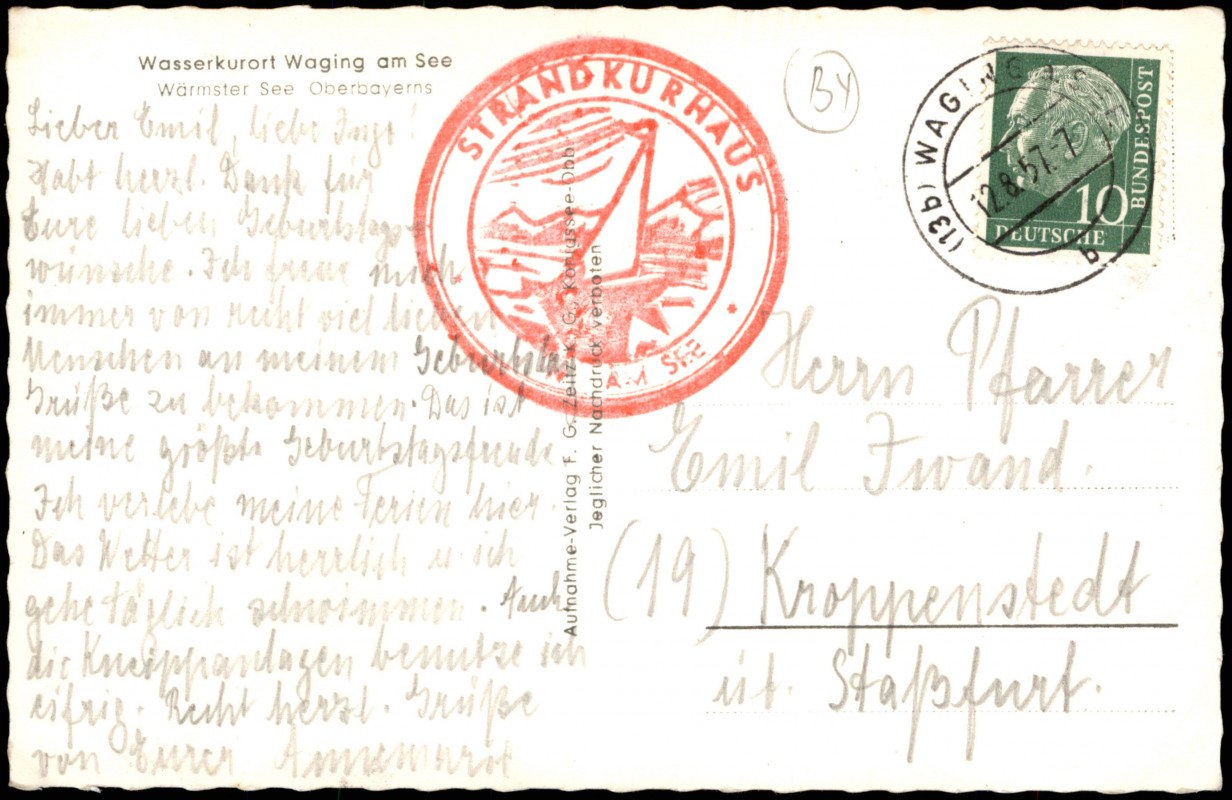 Wasserkurort Waging am See
Wärmster See Oberbayerns
Lieber Emil, liebe Inge!
Habt herzl. Dank für
Eure lieben Geburtstags-
wünsche. Ich freue mich
immer von recht viel lieben
Menschen an meinem Geburtstag
Grüße zu bekommen. Das ist
meine größte Geburtstagsfreude
Ich verlebe meine Ferien hier.
Das Wetter ist herrlich u. ich
gehe täglich schwimmen. Auch
die Kneippanlagen benutze ich
eifrig. Recht herzl. Grüße
von Eurer
STRANDKURHAUS
AM SEE
Aufnahme-Verlag F. G. Zeitz K. G., Königssee-Obb
Jeglicher Nachdruck verboten
BY
(13b) WAGING
12.8.57.-7
b
10
DEUTSCHE
BUNDESPOST
Herrn Pfarrer
Emil Iwand.
(19) Kroppenstedt
üb. Staßfurt.